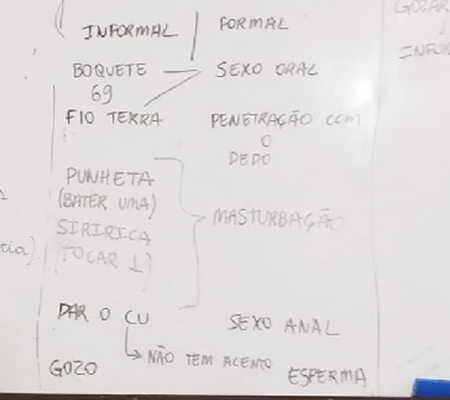 INFORMAL | FORMAL
BOQUETE — SEXO ORAL
69
FIO TERRA PENETRAÇÃO COM
O
DEDO
PUNHETA
(BATER UMA)
MASTURBAÇÃO
SIRIRICA
(TOCAR 1)
DAR O CU SEXO ANAL
NÃO TEM ACENTO
GOZO ESPERMA
GOZAR